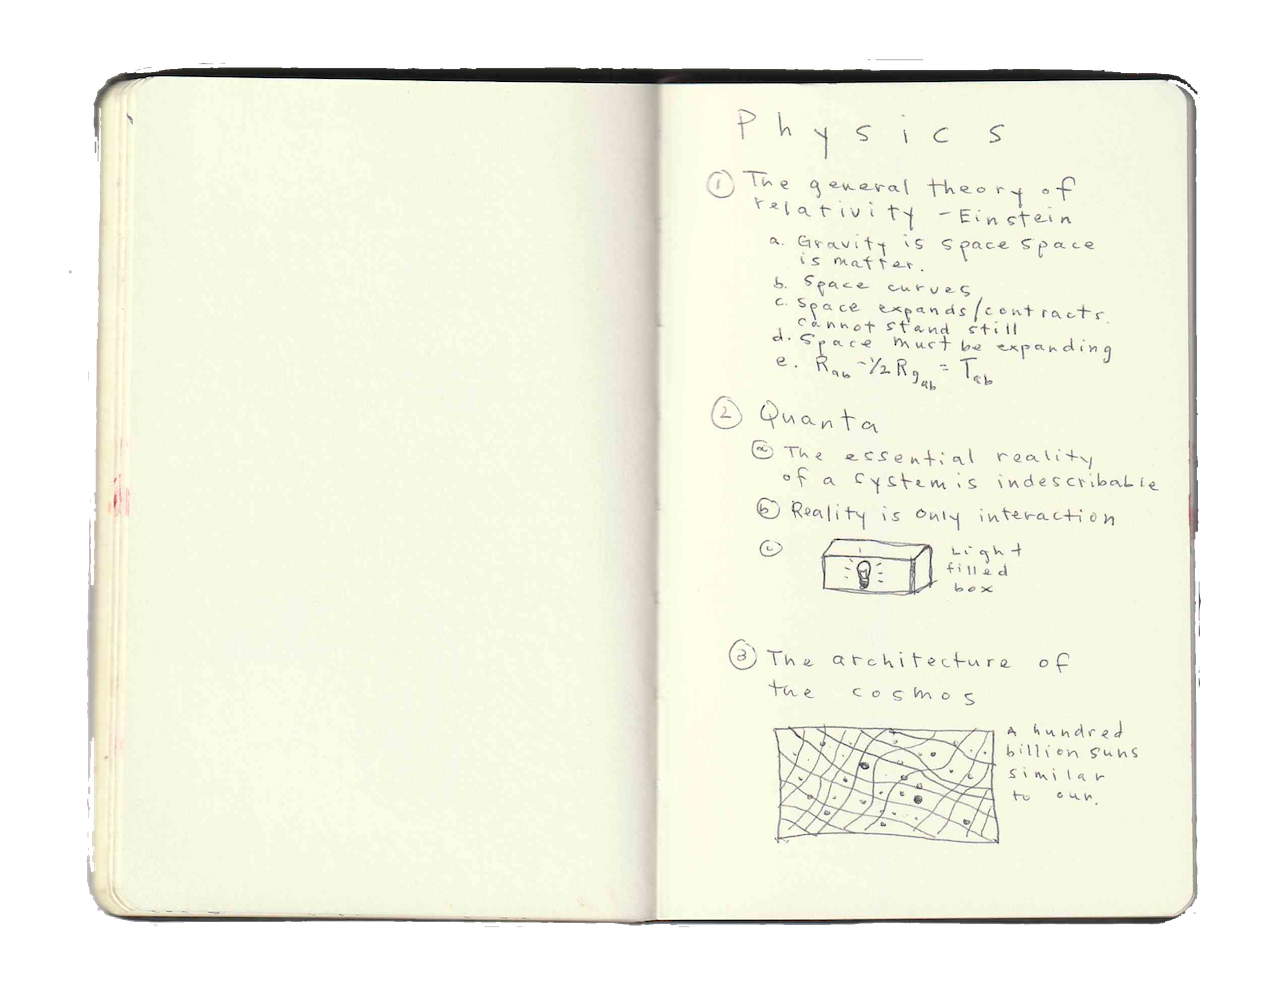 Physics
① The general theory of
relativity - Einstein
a. Gravity is space space
is matter.
b. Space curves
c. Space expands/contracts.
cannot stand still
d. Space must be expanding
e. Rab - 1/2 Rgab = Tab
② Quanta
ⓐ The essential reality
of a system is indescribable
ⓑ Reality is only interaction
ⓒ
Light
filled
box
③ The architecture of
the cosmos
A hundred
billion suns
similar
to our.